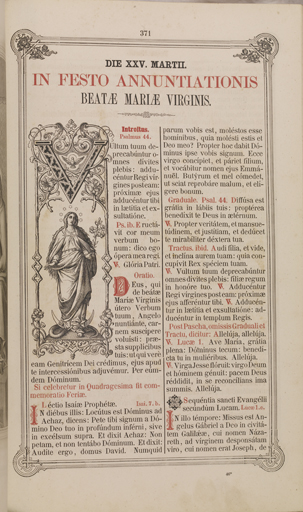 371
DIE XXV. MARTII.
IN FESTO ANNUNTIATIONIS
BEATÆ MARIÆ VIRGINIS.
Introitus.
Psalmus 44.
Vultum tuum de-
precabúntur o-
mnes dívites
plebis: addu-
céntur Regi vír-
gines post eam:
próximæ ejus
adducéntur tibi
in lætítia et ex-
sultatióne.
Ps. ib. Eructá-
vit cor meum
verbum bo-
num: dico ego
ópera mea regi.
℣. Glória Patri.
Oratio.
Deus, qui
de beátæ
Maríæ Vírginis
útero Verbum
tuum, Angelo
nuntiánte, car-
nem suscípere
voluísti: præ-
sta supplícibus
tuis: ut qui vere
eam Genitrícem Dei crédimus, ejus apud
te intercessiónibus adjuvémur. Per eúm-
dem Dóminum.
Si celebretur in Quadragesima fit com-
memoratio Feriæ.
Léctio Isaíæ Prophétæ. Isai. 7. b.
In diébus illis: Locútus est Dóminus ad
Achaz, dicens: Pete tibi signum a Dó-
mino Deo tuo in profúndum inférni, sive
in excélsum supra. Et dixit Achaz: Non
petam, et non tentábo Dóminum. Et dixit:
Audíte ergo, domus David. Numquid
parum vobis est, moléstos esse
homínibus, quia molésti estis et
Deo meo? Propter hoc dabit Dó-
minus ipse vobis signum. Ecce
virgo concípiet, et páriet fílium,
et vocábitur nomen ejus Emmá-
nuel. Butyrum et mel cómedet,
ut sciat reprobáre malum, et elí-
gere bonum.
Graduale. Psal. 44. Diffúsa est
grátia in lábiis tuis: proptérea
benedíxit te Deus in ætérnum.
℣. Propter veritátem, et mansue-
túdinem, et justítiam, et dedúcet
te mirabíliter déxtera tua.
Tractus. ibid. Audi fília, et vide,
et inclína aurem tuam: quia con-
cupívit Rex spéciem tuam.
℣. Vultum tuum deprecabúntur
omnes dívites plebis: fíliæ regum
in honóre tuo. ℣. Adducéntur
Regi vírgines post eam: próximæ
ejus afferéntur tibi. ℣. Adducén-
tur in lætítia et exsultatióne: ad-
ducéntur in templum Regis.
Post Pascha, omissis Graduali et
Tractu, dicitur: Allelúja, allelúja.
℣. Lucæ 1. Ave María, grátia
plena: Dóminus tecum: benedí-
cta tu in muliéribus. Allelúja.
℣. Virga Jesse flóruit: virgo Deum
et hóminem génuit: pacem Deus
réddidit, in se reconcílians ima
summis. Allelúja.
Sequéntia sancti Evangélii
secúndum Lucam. Luc. 1. c.
In illo témpore: Missus est An-
gelus Gábriel a Deo in civitá-
tem Galilǽæ, cui nomen Náza-
reth, ad vírginem desponsátam
viro, cui nomen erat Joseph, de